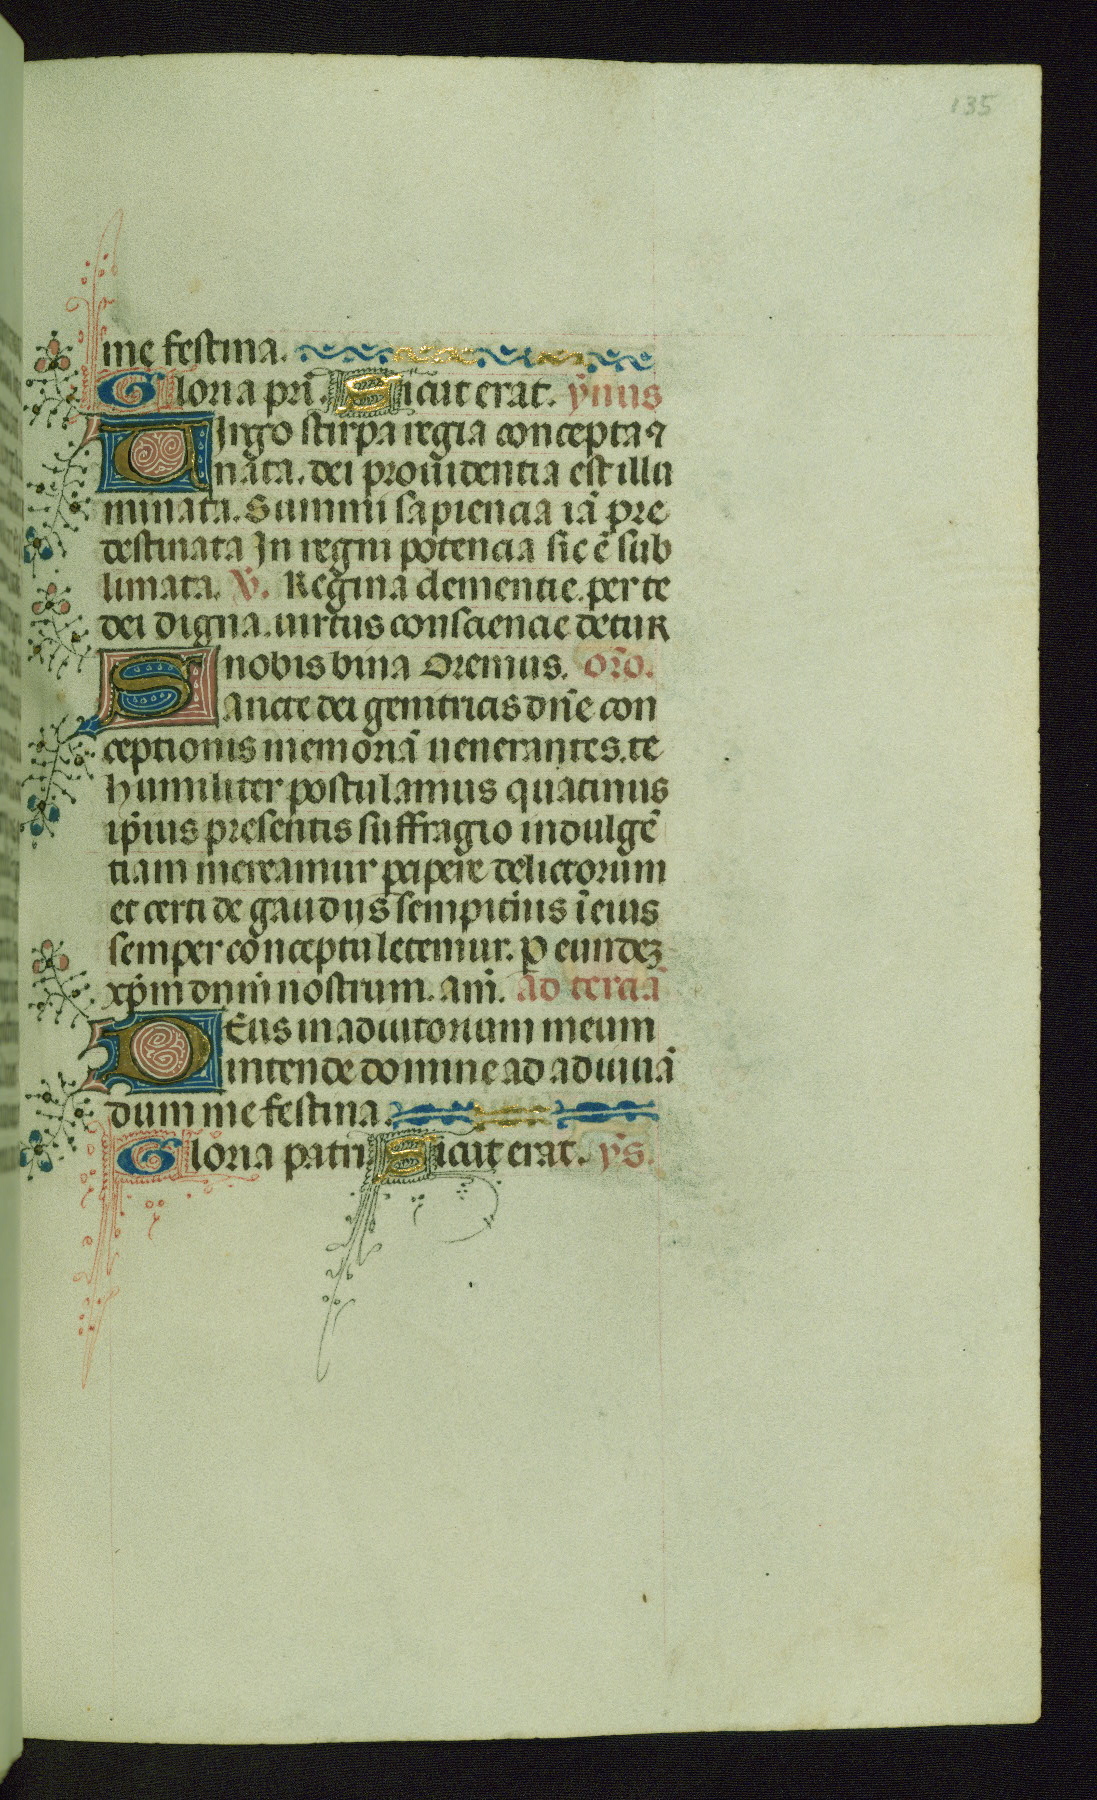 135
me festina.
Gloria pri̅. Sicut erat. ym̅us
Uirgo stirpa regia concepta ⁊
nata. dei prouidentia est illu
minata. Summi sapiencia ia̅ pre
destinata In regni potencia sic e̅ sub
limata. V̅. Regina clementie. per te
dei digna. uirtus consciencie detur
nobis bina Oremus. or̅o.
Sancte dei genitricis dn̅e con
ceptionis memoria̅ uenerantes. te
humiliter postulamus quatinus
ip̅ius presentis suffragio indulge̅
tiam mereamur percipere delictorum
et certi de gaudijs sempit̅nis i̅ eius
semper conceptu letemur. P eundez
xp̅m dnm̅ nostrum. am̅. ad tercia̅
Deus in adiutorium meum
intende domine ad adiuua̅
dum me festina.
Gloria patri Sicut erat. ym̅s.